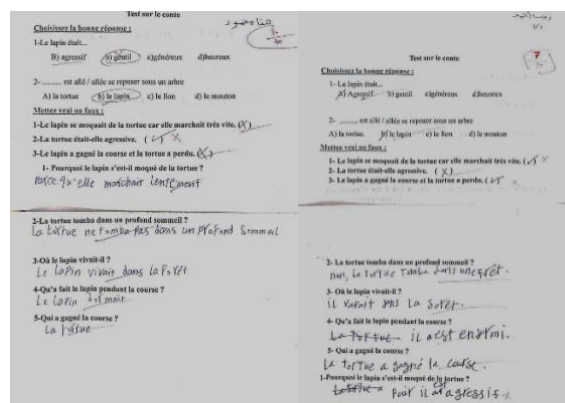 Test sur le conte
Choisissez la bonne réponse :
1-Le lapin était...
B) agressif b) gentil c)généreux d)heureux
2- ......... est allé / allée se reposer sous un arbre
A) la tortue b) le lapin c) le lion d) le mouton
Mettez vrai ou faux :
1-Le lapin se moquait de la tortue car elle marchait très vite. (X)
2-La tortue était-elle agressive. ( ) X
3-Le lapin a gagné la course et la tortue a perdu. (X)
1- Pourquoi le lapin s'est-il moqué de la tortue ?
Parce qu'elle marchait lentement
2-La tortue tomba dans un profond sommeil ?
La tortue ne tomba pas dans un profond Sommeil
3-Où le lapin vivait-il ?
Le lapin vivait dans la forêt
4-Qu'a fait le lapin pendant la course ?
Le lapin dormait
5-Qui a gagné la course ?
La tortue
Test sur le conte
Choisissez la bonne réponse :
1- Le lapin était...
A) Agressif b) gentil c)généreux d)heureux
2- ......... est allé / allée se reposer sous un arbre
A) la tortue b) le lapin c) le lion d) le mouton
Mettez vrai ou faux :
1- Le lapin se moquait de la tortue car elle marchait très vite. ( ) X
2- La tortue était-elle agressive. (X)
3- Le lapin a gagné la course et la tortue a perdu. ( ) X
2- La tortue tomba dans un profond sommeil ?
non, la tortue tomba dans
3- Où le lapin vivait-il ?
il vivait dans la
4- Qu'a fait le lapin pendant la course ?
il est
5- Qui a gagné la course ?
la tortue a gagné la course.
1-Pourquoi le lapin s'est-il moqué de la tortue ?
Pour il agressif